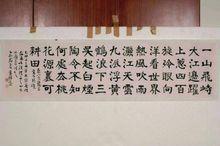 一山飛峙
大江邊躍
上葱四百
旋冷眼向
洋看世界
熱風吹雨
灑江天雲
九派浮黃
鶴浪下三
吳起白煙
陶令不知
何處去桃
花源裏可
耕田